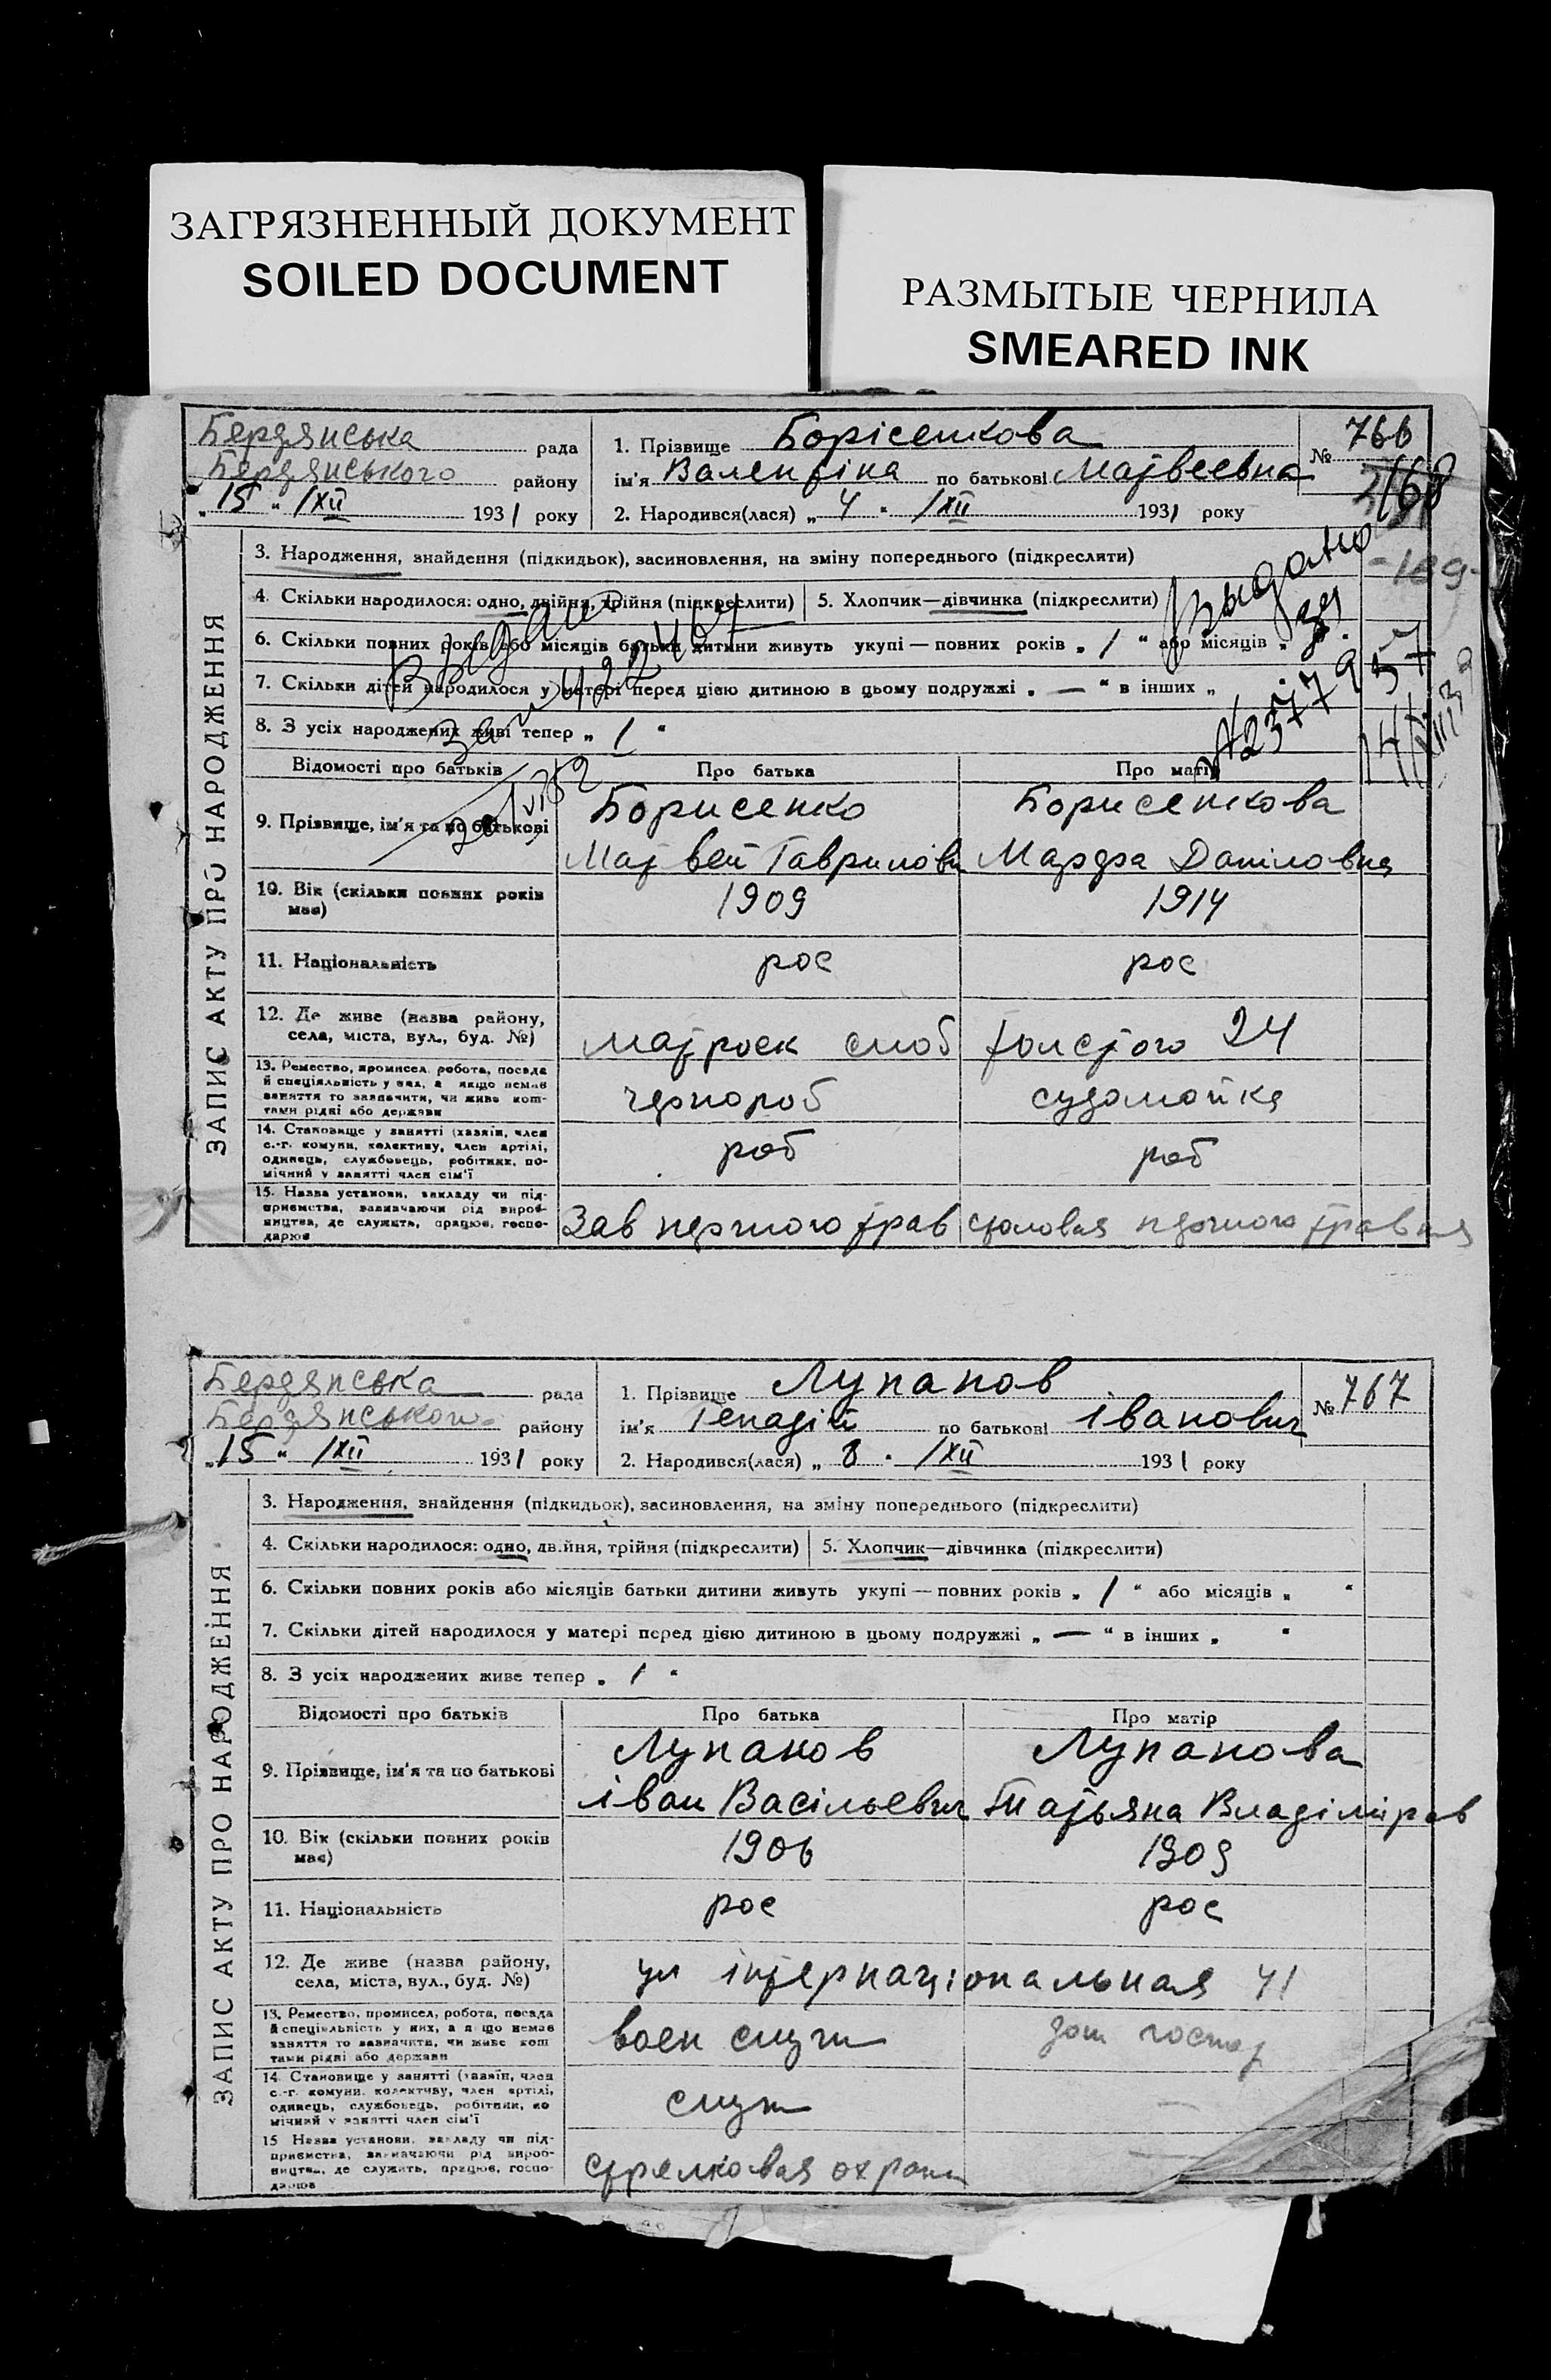 ЗАГРЯЗНЕННЫЙ ДОКУМЕНТ
SOILED DOCUMENT
РАЗМЫТЫЕ ЧЕРНИЛА
SMEARED INK
Бердянська рада
Бердянського району
„15“ /XII 1931 року
1. Прізвище Борісенкова
ім'я Валентіна по батькові Матвеевна
2. Народився(лася) „4“ /XII 1931 року
№ 766
ЗАПИС АКТУ ПРО НАРОДЖЕННЯ
3. Народження, знайдення (підкидьок), засиновлення, на зміну попереднього (підкреслити)
4. Скільки народилося: одно, двійня, трійня (підкреслити) 5. Хлопчик—дівчинка (підкреслити)
6. Скільки повних років або місяців батьки дитини живуть укупі — повних років „ 1 “ або місяців „
7. Скільки дітей народилося у матері перед цією дитиною в цьому подружжі „ — “ в інших „
8. З усіх народжених живі тепер „ 1 “
Відомості про батьків Про батька Про матір
9. Прізвище, ім'я та по батькові Борисенко Борисенкова
Матвей Гаврилови Марфа Даніловня
10. Вік (скільки повних років має) 1909 1914
11. Національність рос рос
12. Де живе (назва району, села, міста, вул., буд. №) матроск слоб толстого 24
13. Ремество, промисел, робота, посада й спеціяльність у них, а якщо немає заняття то зазначити, чи живе коштами рідні або держави чорнороб судомойка
14. Становище у занятті (хазяїн, член с.-г. комуни, колективу, член артілі, одинець, службовець, робітник, помічний у занятті член сім'ї роб роб
15. Назва установи, закладу чи підприємства, зазначаючи рід виробництва, де служить, працює, господарює Зав першого трав столовая першого травня
Бердянська рада
Бердянського району
„15“ /XII 1931 року
1. Прізвище Лупанов
ім'я Генадій по батькові Іванович
2. Народився(лася) „8“ /XII 1931 року
№ 767
ЗАПИС АКТУ ПРО НАРОДЖЕННЯ
3. Народження, знайдення (підкидьок), засиновлення, на зміну попереднього (підкреслити)
4. Скільки народилося: одно, двійня, трійня (підкреслити) 5. Хлопчик—дівчинка (підкреслити)
6. Скільки повних років або місяців батьки дитини живуть укупі — повних років „ 1 “ або місяців „ “
7. Скільки дітей народилося у матері перед цією дитиною в цьому подружжі „ — “ в інших „ “
8. З усіх народжених живе тепер „ 1 “
Відомості про батьків Про батька Про матір
9. Прізвище, ім'я та по батькові Лупанов Лупанова
Іван Васільевич Татьяна Владіміров
10. Вік (скільки повних років має) 1906 1909
11. Національність рос рос
12. Де живе (назва району, села, міста, вул., буд. №) ул інтернаціональная 41
13. Ремество, промисел, робота, посада й спеціяльність у них, а якщо немає заняття то зазначити, чи живе коштами рідні або держави воен служ дом господ
14. Становище у занятті (хазяїн, член с.-г. комуни, колективу, член артілі, одинець, службовець, робітник, помічний у занятті член сім'ї служ
15 Назва установи, закладу чи підприємства, зазначаючи рід виробництва, де служить, працює, господарює стрелковая охрани